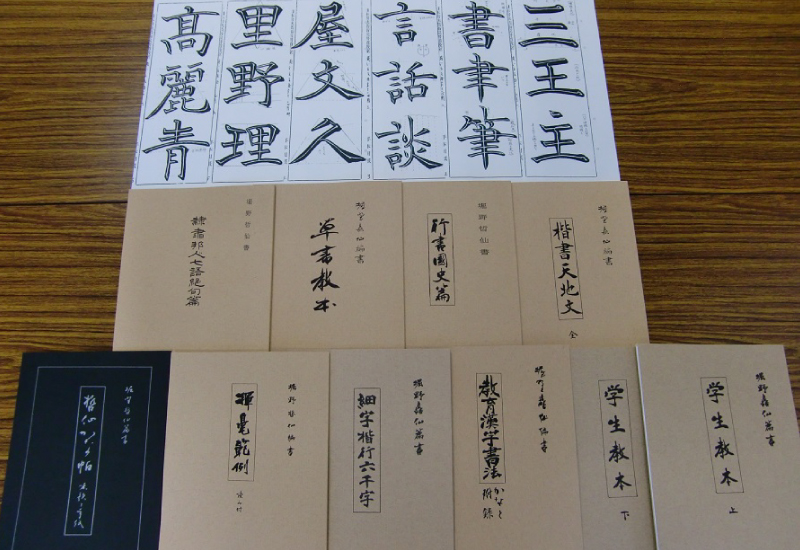 三王主
書聿筆
言話談
屋文久
里野理
髙麗青
楷書天地文
全
堀野哲仙書
行書國史篇
堀野哲仙編書
草書教本
堀野哲仙書
隷書邦人七語絶句篇
学生教本
上
学生教本
下
堀野哲仙編書
教育漢字書法
かなと
附録
堀野哲仙編書
細字楷行六千字
堀野哲仙編書
揮毫範例
堀野哲仙編書
哲仙
帖